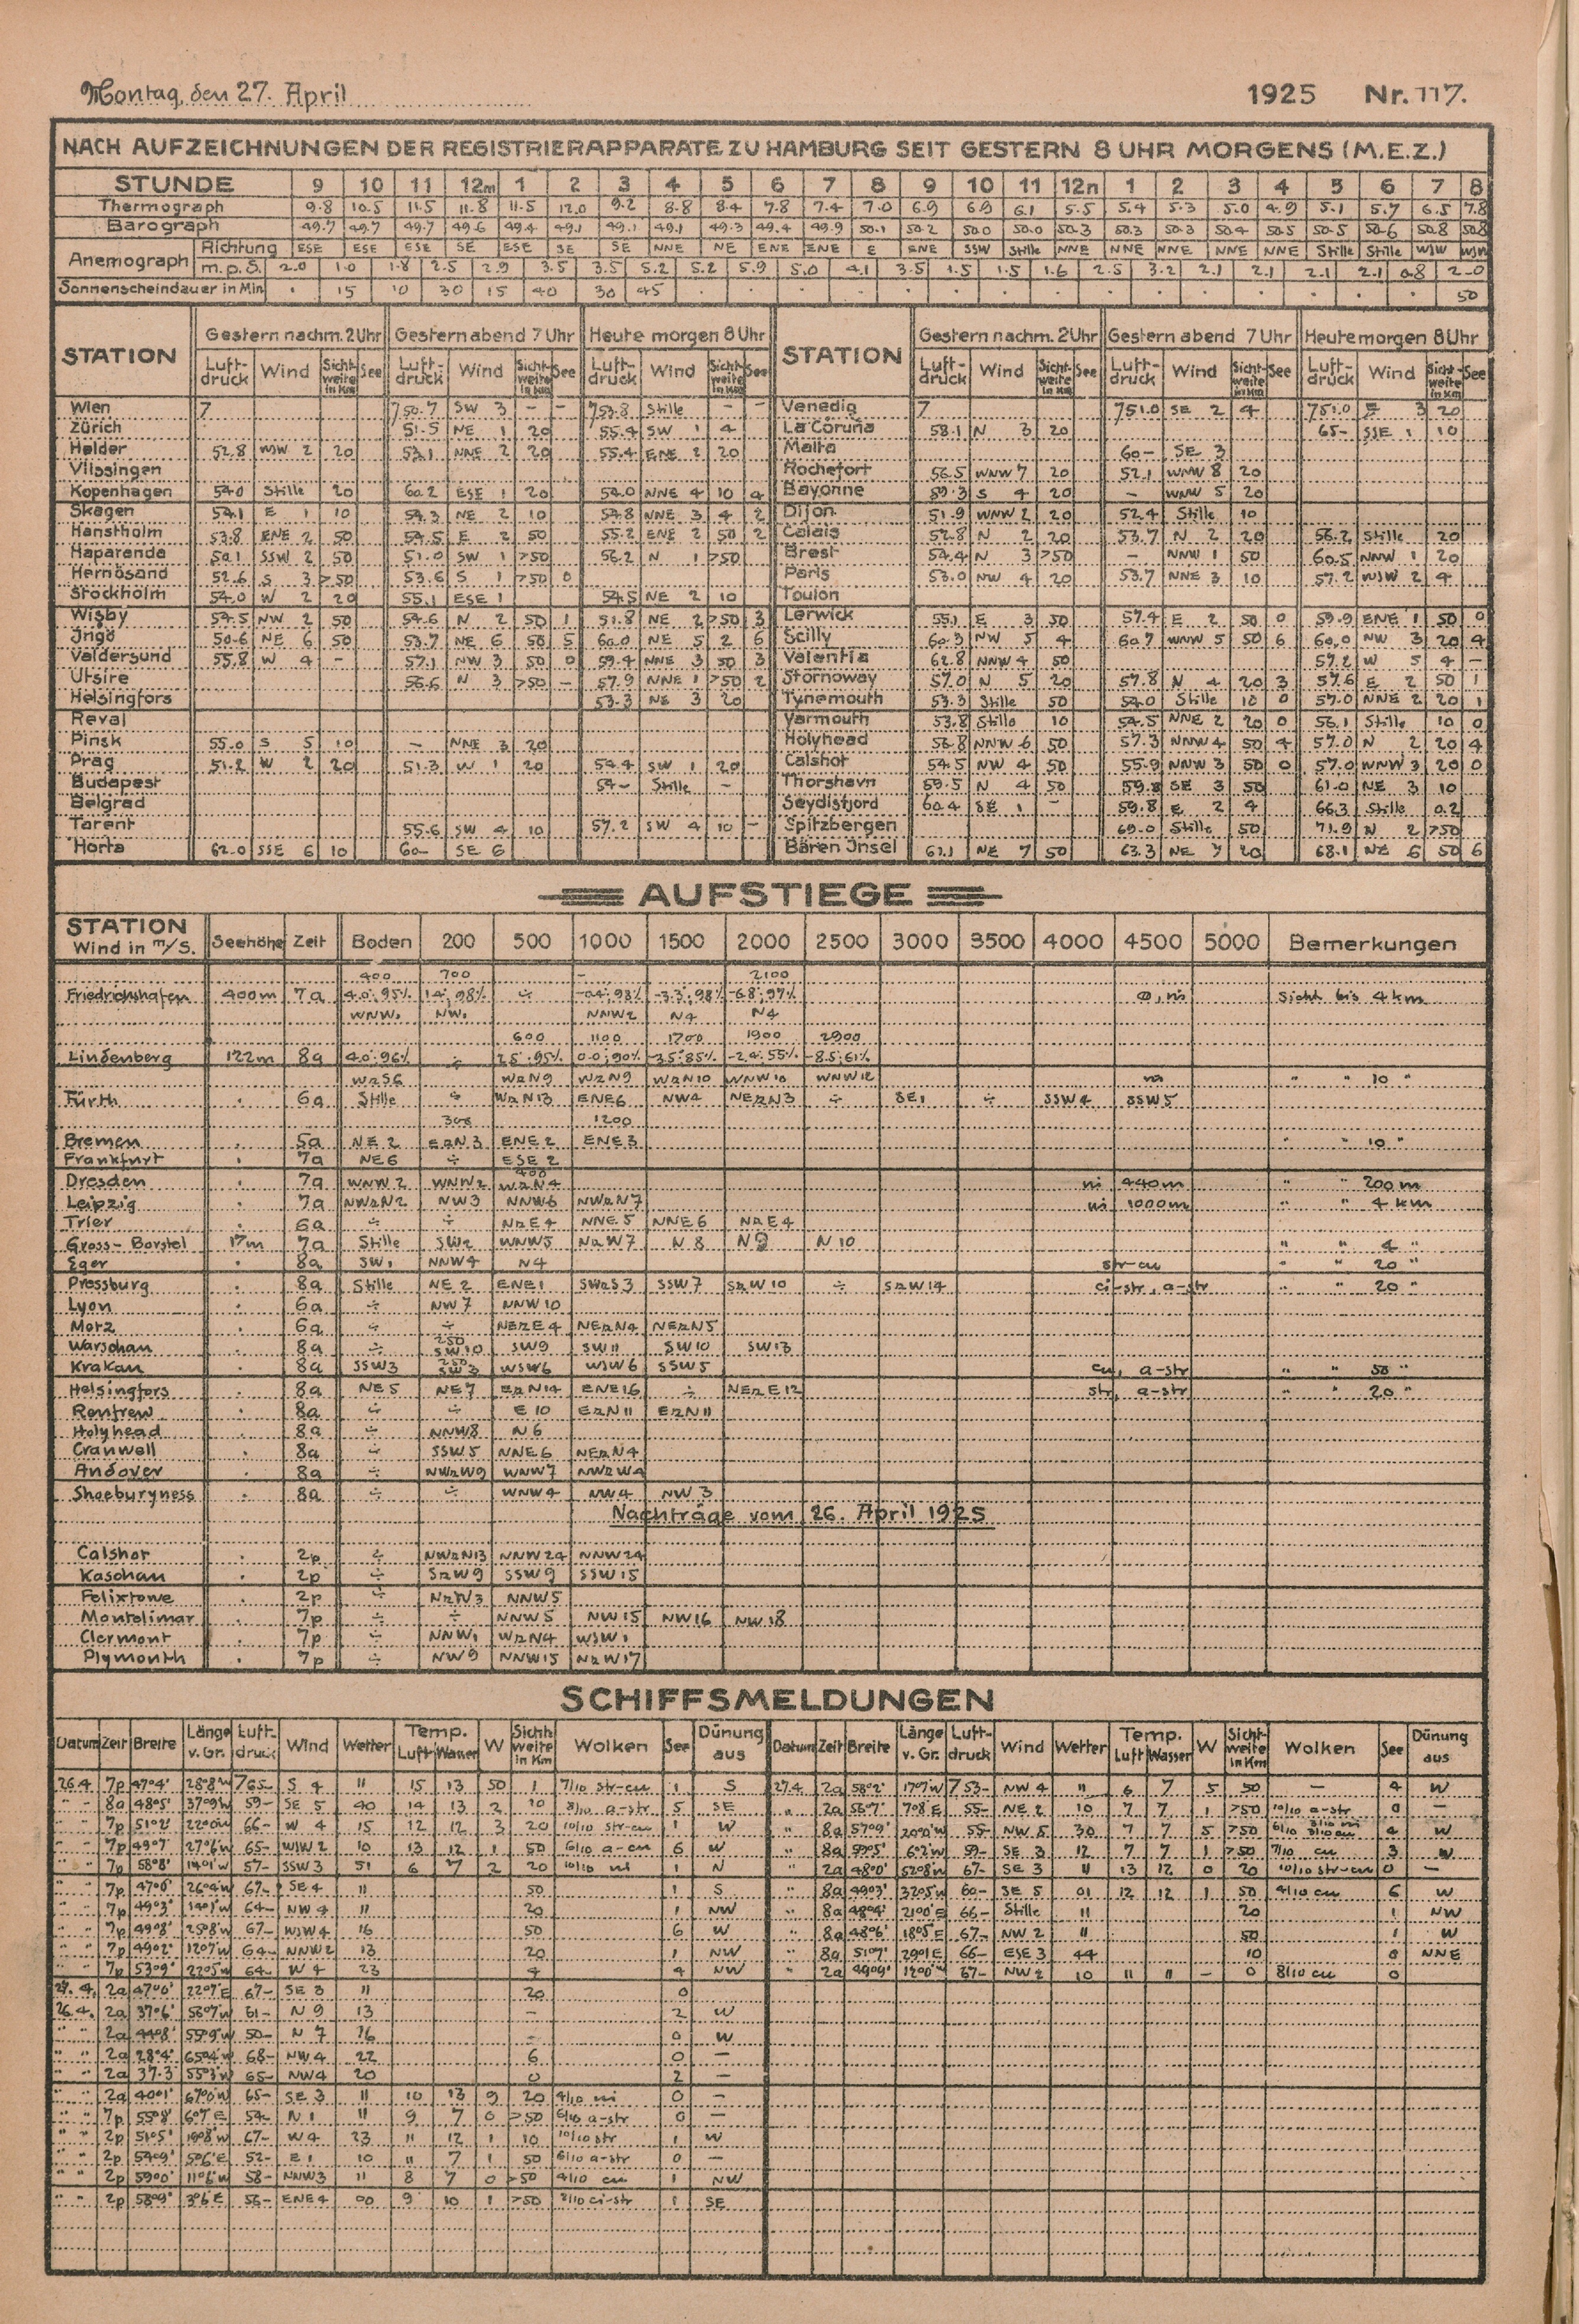 Montag, den 27. April 1925 Nr. 117.
NACH AUFZEICHNUNGEN DER REGISTRIERAPPARATE ZU HAMBURG SEIT GESTERN 8 UHR MORGENS (M.E.Z.)
STUNDE 9 10 11 12m 1 2 3 4 5 6 7 8 9 10 11 12n 1 2 3 4 5 6 7 8
Thermograph 9.8 10.5 11.5 11.8 11.5 12.0 9.2 8.8 8.4 7.8 7.4 7.0 6.9 6.9 6.1 5.5 5.4 5.3 5.0 4.9 5.1 5.7 6.5 7.8
Barograph 49.7 49.7 49.7 49.6 49.4 49.1 49.1 49.1 49.3 49.4 49.9 50.1 50.2 50.0 50.0 50.3 50.3 50.3 50.4 50.5 50.5 50.6 50.8 50.8
Anemograph Richtung ESE ESE ESE SE ESE SE SE NNE NE ENE ENE E ENE SSW Stille NNE NNE NNE NNE NNE Stille Stille WSW WSW
m.p.S. 2.0 1.0 1.8 2.5 2.9 3.5 3.5 5.2 5.2 5.9 5.0 4.1 3.5 1.5 1.5 1.6 2.5 3.2 2.1 2.1 2.1 2.1 0.8 2-0
Sonnenscheindauer in Min . 15 10 30 15 40 30 45 . . . . . . . . . . . . . . . 50
STATION Gestern nachm. 2 Uhr Gestern abend 7 Uhr Heute morgen 8 Uhr STATION Gestern nachm. 2 Uhr Gestern abend 7 Uhr Heute morgen 8 Uhr
Luft-druck Wind Sicht-weite in Km See Luft-druck Wind Sicht-weite in Km See Luft-druck Wind Sicht-weite in Km See Luft-druck Wind Sicht-weite in Km See Luft-druck Wind Sicht-weite in Km See Luft-druck Wind Sicht-weite in Km See
Wien 7 750.7 SW 3 - - 753.8 Stille - - Venedig 7 751.0 SE 2 4 751.0 E 3 20
Zürich 51.5 NE 1 20 55.4 SW 1 4 La Coruña 58.1 N 3 20 65- SSE 1 10
Helder 52.8 WSW 2 20 53.1 NNE 2 20 55.4 ENE 2 20 Malta 60- SE 3
Vlissingen Rochefort 56.5 WNW 7 20 52.1 WNW 8 20
Kopenhagen 54.0 Stille 20 60.2 ESE 1 20 54.0 NNE 4 10 4 Bayonne 59.3 S 4 20 - WNW 5 20
Skagen 54.1 E 1 10 54.3 NE 2 10 54.8 NNE 3 4 2 Dijon 51.9 WNW 2 20 52.4 Stille 10
Hanstholm 53.8 ENE 2 50 54.5 E 2 50 55.2 ENE 2 50 2 Calais 52.8 N 2 20 53.7 N 2 20 56.2 Stille 20
Haparanda 50.1 SSW 2 50 51.0 SW 1 >50 56.2 N 1 >50 Brest 54.4 N 3 >50 - NNW 1 50 60.5 NNW 1 20
Hernösand 52.6 S 3 >50 53.6 S 1 >50 0 Paris 53.0 NW 4 20 53.7 NNE 3 10 57.2 WSW 2 4
Stockholm 54.0 W 2 20 55.1 ESE 1 54.5 NE 2 10 Toulon
Wisby 54.5 NW 2 50 54.6 N 2 50 1 51.8 NE 2 >50 3 Lerwick 55.1 E 3 50 57.4 E 2 50 0 59.9 ENE 1 50 0
Jngö 50.6 NE 6 50 53.7 NE 6 50 5 60.0 NE 5 2 6 Scilly 60.3 NW 5 4 60.7 WNW 5 50 6 60.0 NW 3 20 4
Valdersund 55.8 W 4 - 57.1 NW 3 50 0 59.4 NNE 3 50 3 Valentia 62.8 NNW 4 50 57.2 W 5 4 -
Utsire 56.6 N 3 >50 - 57.9 NNE 1 >50 2 Stornoway 57.0 N 5 20 57.8 N 4 20 3 57.6 E 2 50 1
Helsingfors 53.3 NE 3 20 Tynemouth 53.3 Stille 50 54.0 Stille 10 0 57.0 NNE 2 20 1
Reval Yarmouth 53.8 Stille 10 54.5 NNE 2 20 0 56.1 Stille 10 0
Pinsk 55.0 S 5 10 - NNE 3 20 Holyhead 56.8 NNW 6 50 57.3 NNW 4 50 4 57.0 N 2 20 4
Prag 51.2 W 2 20 51.3 W 1 20 54.4 SW 1 20 Calshot 54.5 NW 4 50 55.9 NNW 3 50 0 57.0 WNW 3 20 0
Budapest 54- Stille - Thorshavn 59.5 N 4 50 59.8 SE 3 50 61.0 NE 3 10
Belgrad Seydisfjord 60.4 SE 1 - 59.8 E 2 4 66.3 Stille 0.2
Tarent 55.6 SW 4 10 57.2 SW 4 10 - Spitzbergen 69.0 Stille 50 71.9 N 2 >50
Horta 62.0 SSE 6 10 60- SE 6 Bären Jnsel 61.1 NE 7 50 63.3 NE 7 20 68.1 NE 6 50 6
AUFSTIEGE
STATION Wind in m/S. Seehöhe Zeit Boden 200 500 1000 1500 2000 2500 3000 3500 4000 4500 5000 Bemerkungen
400 700 - 2100
Friedrichshafen 400m 7a 4.0°, 95% 1.4°, 98% ÷ -0.4°, 98% -3.3°, 98% -6.8°, 97% ni Sicht bis 4 km
WNW1 NW1 NNW2 N4 N4
600 1100 1700 1900 2900
Lindenberg 122m 8a 4.0°, 96% ÷ 2.5°, 95% 0.0°, 90% -3.5°, 85% -2.4°, 55% -8.5°, 61%
WzS6 WzN9 WzN9 WzN10 WNW10 WNW12 ni " " 10 "
Fürth . 6a Stille ÷ WzN13 ENE6 NW4 NEzN3 ÷ SE1 ÷ SSW4 SSW5
300 1200
Bremen . 5a NE 2 EzN 3 ENE 2 ENE 3 " " 10 "
Frankfurt . 7a NE6 ÷ ESE 2
400
Dresden . 7a WNW 2 WNW2 WzN4 ni 440m " " 200 m
Leipzig . 7a NWzN2 NW3 NNW6 NWzN7 ni 1000m " " 4 km
Trier . 6a ÷ ÷ NzE4 NNE 5 NNE 6 NzE 4
Gross-Borstel 17m 7a Stille SW2 WNW5 NzW7 N 8 N 9 N 10 " " 4 "
Eger . 8a SW1 NNW4 N4 str-cu " " 20 "
Pressburg . 8a Stille NE 2 ENE1 SWzS3 SSW7 SzW10 ÷ SzW14 ci-str, a-str " " 20 "
Lyon . 6a ÷ NW 7 NNW10
Metz . 6a ÷ ÷ NEzE4 NEzN4 NEzN5
250
Warschau . 8a ÷ SW10 SW9 SW11 SW10 SW13
250
Krakau . 8a SSW3 SW3 WSW6 WSW6 SSW5 cu, a-str " " 50 "
Helsingfors . 8a NE5 NE7 EzN14 ENE16 ÷ NEzE12 str, a-str " " 20 "
Renfrew . 8a ÷ ÷ E 10 EzN11 EzN11
Holyhead . 8a ÷ NNW8 N 6
Cranwell . 8a ÷ SSW5 NNE6 NEzN4
Andover . 8a ÷ NWzW9 WNW7 NWzW4
Shoeburyness . 8a ÷ ÷ WNW4 NW4 NW 3
Nachträge vom 26. April 1925
Calshot . 2p ÷ NWzN13 NNW24 NNW24
Kaschau . 2p ÷ SzW9 SSW9 SSW15
Felixtowe . 2p ÷ NzW3 NNW5
Montelimar . 7p ÷ ÷ NNW5 NW15 NW16 NW18
Clermont . 7p ÷ NNW1 WzN4 WSW1
Plymouth . 7p ÷ NW9 NNW15 NzW17
SCHIFFSMELDUNGEN
Datum Zeit Breite Länge v. Gr. Luft-druck Wind Wetter Temp. Luft Wasser W Sicht-weite in Km Wolken See Dünung aus Datum Zeit Breite Länge v. Gr. Luft-druck Wind Wetter Temp. Luft Wasser W Sicht-weite in Km Wolken See Dünung aus
26.4. 7p 47°4' 28°8'W 765- S 4 " 15 13 50 1 7/10 str-cu 1 S 27.4. 2a 58°2' 17°7'W 753- NW 4 " 6 7 5 50 - 4 W
" " 8a 48°5' 37°9'W 59- SE 5 40 14 13 2 10 8/10 a-str 5 SE " 2a 56°7' 7°8'E 55- NE 2 10 7 7 1 >50 10/10 a-str 0 -
" " 7p 51°2' 22°0'W 66- W 4 15 12 12 3 20 10/10 str-cu 1 W " 8a 57°9' 20°0'W 55- NW 5 30 7 7 5 >50 4 W
" " 7p 49°7' 27°6'W 65- WSW 2 10 13 12 1 50 6/10 a-cu 6 W " 8a 59°5' 6°2'W 59- SE 3 12 7 7 1 >50 7/10 cu 3 W
" " 7p 58°8' 14°1'W 57- SSW 3 51 6 7 2 20 10/10 ni 1 N " 2a 48°0' 52°8'W 67- SE 3 " 13 12 0 20 10/10 str-cu 0 -
" " 7p 47°0' 26°4'W 67- SE 4 " 50 1 S " 8a 49°3' 32°5'W 60- SE 5 01 12 12 1 50 4/10 cu 6 W
" " 7p 49°3' 14°1'W 64- NW 4 " 20 1 NW " 8a 48°4' 21°0'E 66- Stille " 20 1 NW
" " 7p 49°8' 25°8'W 67- WSW 4 16 50 6 W " 8a 48°6' 18°5'E 67- NW 2 " 50 1 W
" " 7p 49°2' 12°7'W 64- NNW2 13 20 1 NW " 8a 51°7' 29°1'E 66- ESE 3 44 10 0 NNE
" " 7p 53°9' 22°5'W 64- W 4 23 4 4 NW " 2a 49°9' 12°0'W 67- NW 2 10 " " - 0 8/10 cu 0
27.4. 2a 47°0' 22°7'E 67- SE 3 " 20 0
26.4. 2a 37°6' 58°7'W 61- N 9 13 - 2 W
" " 2a 44°8' 55°9'W 50- N 7 16 - 0 W
" " 2a 28°4' 65°4'W 68- NW 4 22 6 0 -
" " 2a 37.3 55°3'W 65- NW4 20 0 2 -
" " 2a 40°1' 67°0'W 65- SE 3 " 10 13 9 20 4/10 ni 0 -
" " 7p 55°8' 6°7'E 54- N 1 " 9 7 0 >50 6/10 a-str 0 -
" " 2p 51°5' 19°8'W 67- W 4 23 " 12 1 10 10/10 str 1 W
" " 2p 54°9' 5°6'E 52- E 1 10 " 7 1 50 6/10 a-str 0 -
" " 2p 59°0' 11°6'W 58- NNW3 " 8 7 0 >50 4/10 cu 1 NW
" " 2p 58°9' 3°6'E 56- ENE 4 00 9 10 1 >50 3/10 ci-str 1 SE